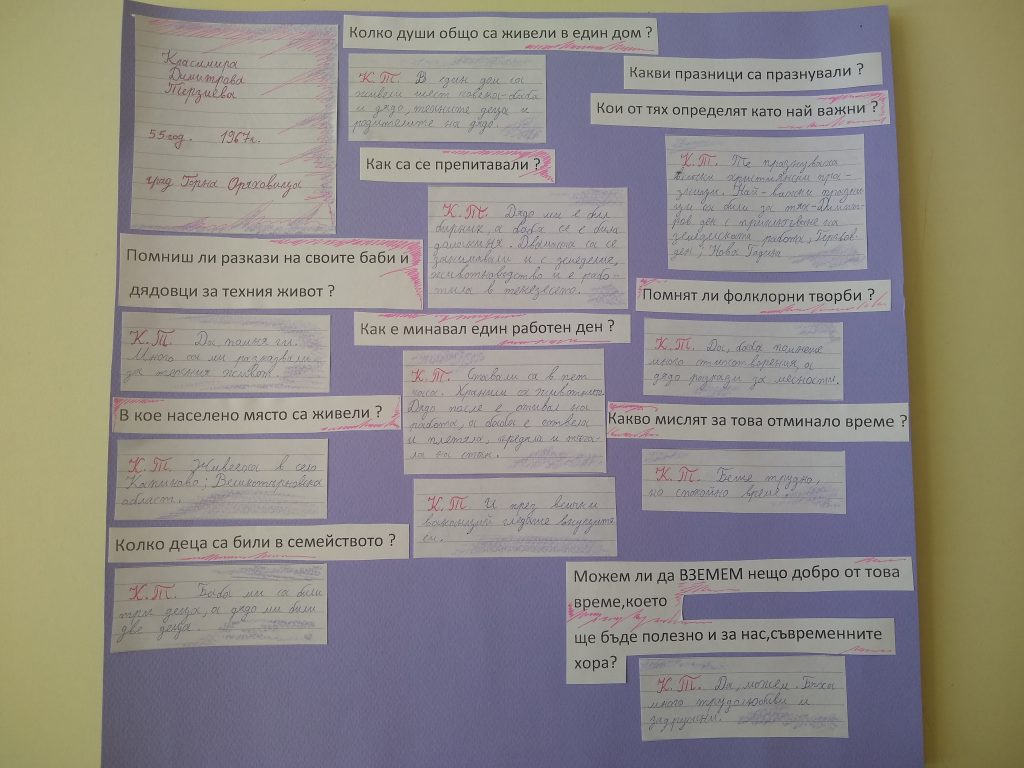 Красимира
Димитрова
Терзиева
55 год. 1967г.
град Горна Оряховица
Помниш ли разкази на своите баби и
дядовци за техния живот ?
К.Т. Да, помня ги.
Много са ми разказвали
за техния живот.
В кое населено място са живели ?
К.Т. Живееха в село
Капиново; Великотърновска
област.
Колко деца са били в семейството ?
К.Т. Баба ми са били
три деца, а дядо ми били
две деца.
Колко души общо са живели в един дом ?
К.Т. В един ден са
живели шест човека-баба
и дядо, техните деца и
родителите на дядо.
Как са се препитавали ?
К.Т. Дядо ми е бил
бирник, а баба се е била
домакиня. Двамата са се
занимавали и с земеделие,
животновъдство и е рабо-
тила в текезесето.
Как е минавал един работен ден ?
К.Т. Ставали са в пет
часа. Хранили са животните.
Дядо после е отивал на
работа, а баба е готвела
и плетяла, предяла и тъка-
ла на стан.
К.Т. И през всички
ваканции гледаше внуците
си.
Какви празници са празнували ?
Кои от тях определят като най важни ?
К.Т. Те празнуваха
всички християнски пра-
зници. Най-важни празни-
ци са били за тях-Димит-
ров ден с приключване на
земеделската работа, Гергьов-
ден, Нова Година
Помнят ли фолклорни творби ?
К.Т. Да, баба помнеше
много стихотворения, а
дядо разкази за местности.
Какво мислят за това отминало време ?
К.Т. Беше трудно,
но спокойно време.
Можем ли да ВЗЕМЕМ нещо добро от това
време,което
ще бъде полезно и за нас,съвременните
хора?
К.Т. Да, можем. Бяха
много трудолюбиви и
задружни.